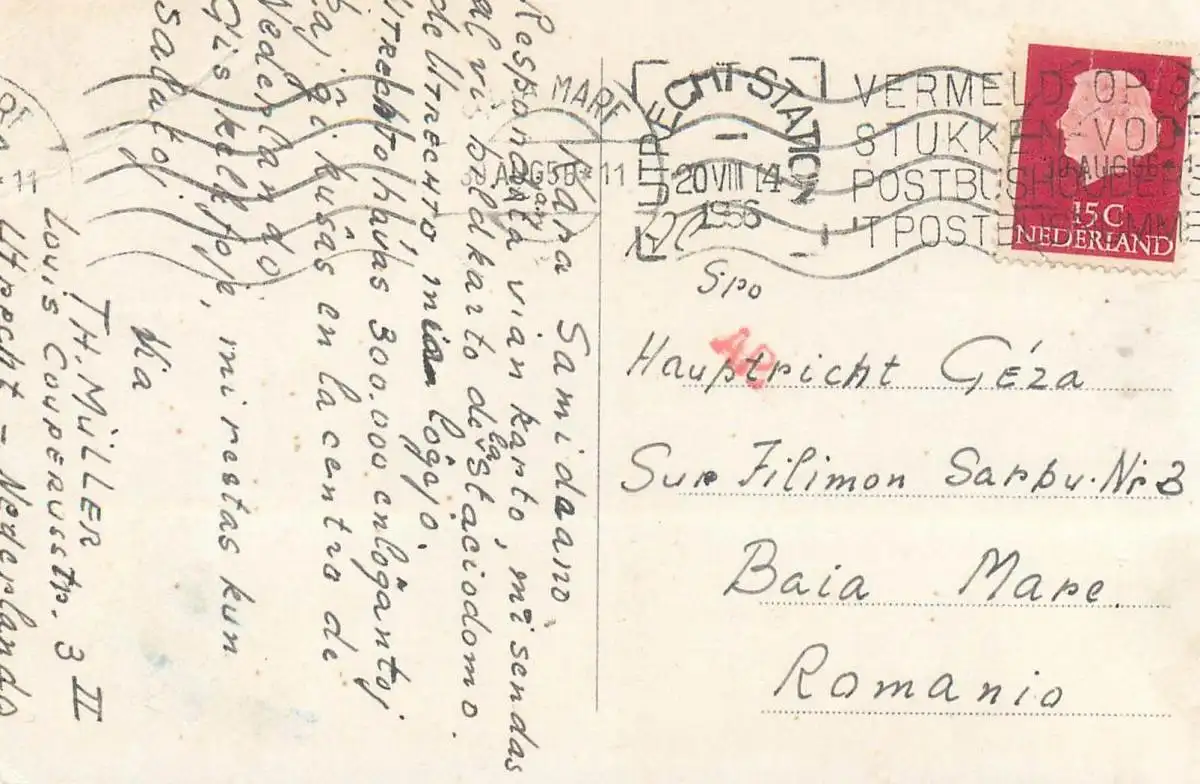 Kara Samideano,
Respondata vian karto, mi sendas
al vi bildkarto de la Staciodomo
de Utrechto mian loĝejo.
Utrechto havas 300.000 enloĝantoj
kaj ĝi kuŝas en la centro de
Nederlando
Ĝis mi restas kun
salutoj
Via
TH. Müller
Louis Couperusstr. 3 II
Utrecht - Nederlando
UTRECHT-STATION
20 VIII 14
1956
VERMELD OP
STUKKEN VOO
POSTBUSHOUDERS
'T POSTBUSNUMME
MARE
AUG56*11
30 AUG56*1
15C
NEDERLAND
Spo
Hauptricht Géza
Sur Filimon Sarbu. Nr 3
Baia Mare
Romanio